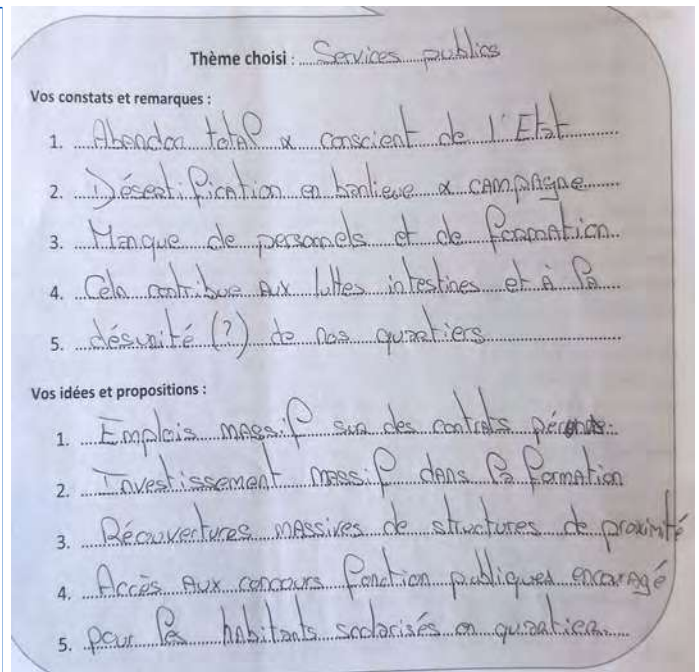 Thème choisi : Services publics
Vos constats et remarques :
1. Abandon total & conscient de l'Etat
2. Désertification en banlieue & campagne
3. Manque de personnels et de formation
4. Cela contribue aux luttes intestines et à la
5. désunité (?) de nos quartiers
Vos idées et propositions :
1. Emplois massif sur des contrats pérennes.
2. Investissement massif dans la formation
3. Réouvertures massives de structures de proximité
4. Accès aux concours fonction publiques encouragé
5. pour les habitants scolarisés en quartier